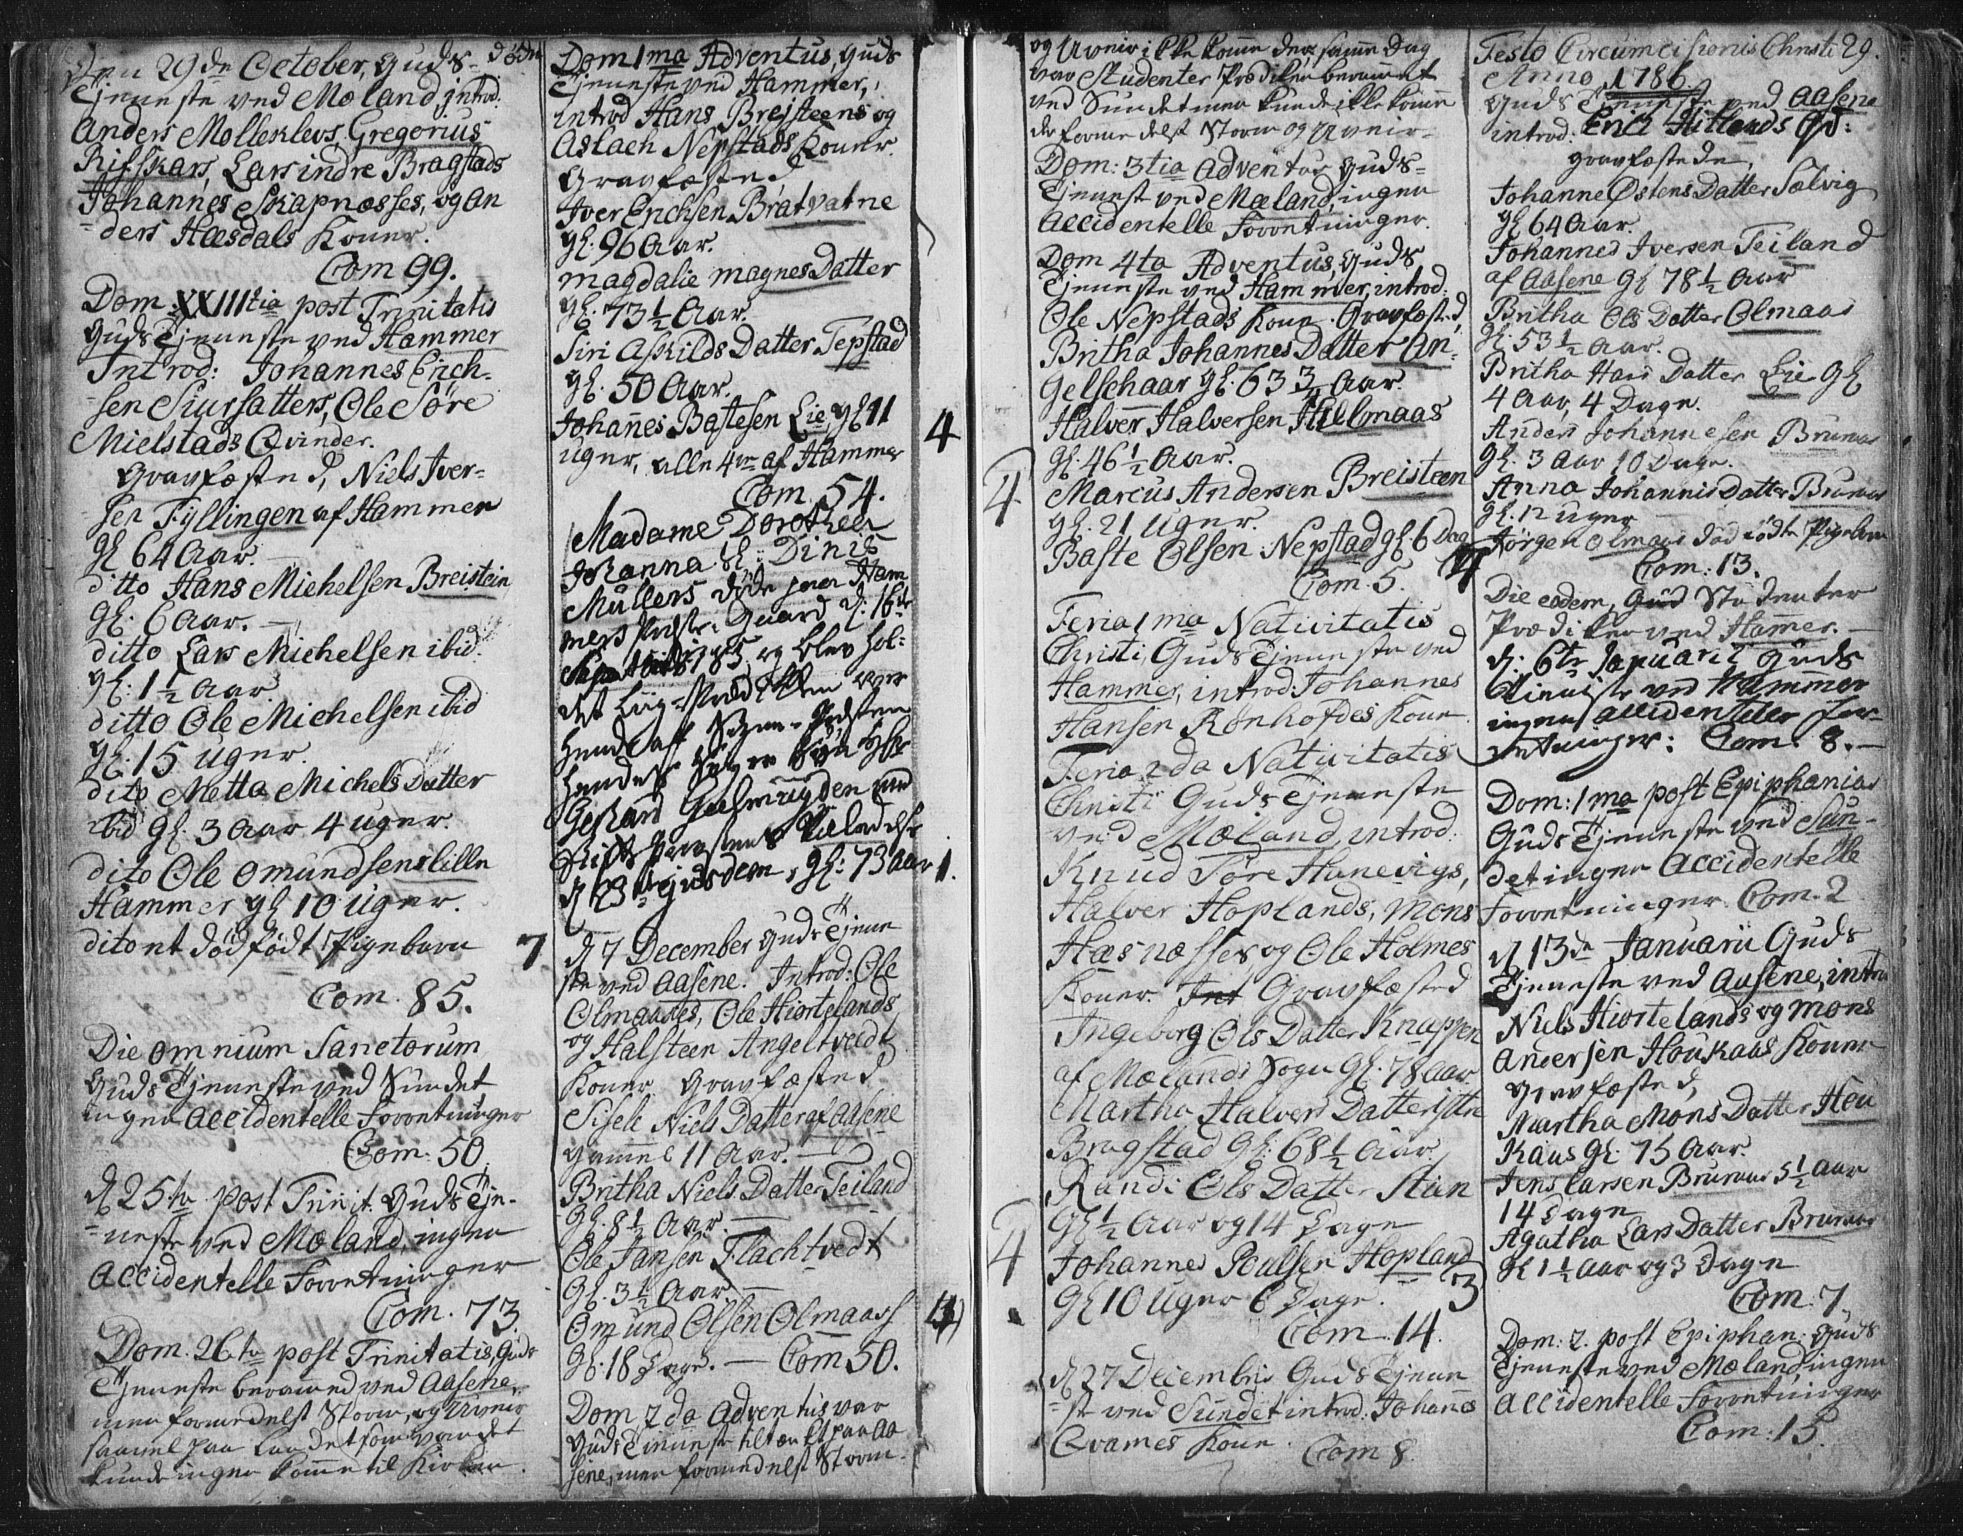 Den 29de October, Guds- døde
Tjeneste ved Mæland introd.
Anders Molleklevs, Gregorius
Rifskars, Lars indre Bragstads
Johannes Skapnæsses, og An
-ders Hæsdals Koner.
Com 99.
Dom XXIIItia post Trinitatis
Guds Tjeneste ved Hammer
Introd: Johannes Erich-
-sen Siursætters, Ole Søre
Mielstads Qvinder.
Gravfæsted, Niels Iver-
sen Fyllingen af Hammer
gl 64 Aar.
ditto Hans Michelsen Breistein
gl. 6 Aar.
ditto Lars Michelsen ibid.
gl: 1½ Aar
ditto Ole Michelsen ibid
gl. 15 uger.
dito Metta Michels Datter
ibid gl. 3 Aar 4 uger.
dito Ole Omundsen lille
Hammer gl 10 uger.
dito et dødfødt Pigebarn 7
Com. 85.
Die omnium Sanctorum
Guds Tjeneste ved Sundet
ingen accidentelle Forretninger
Com. 50.
d 25te post Trinit. Guds Tje-
-neste ved Mæland, ingen
accidentelle Forretninger
Com. 73.
Dom. 26te post Trinitatis, Guds
Tjeneste berammed ved Aasene,
men formedelst Storm, og Uveir
saavel paa Landet som Vandet
kunde ingen komme til Kirken.
Dom 1ma Adventus, Guds
Tjeneste ved Hammer,
introd Hans Brejsteens og
Aslach Nepstads Koner.
Gravfæsted
Iver Erichsen Bratvatne
gl. 96 Aar.
Magdalie Magnes Datter
gl. 73½ Aar.
Siri Askilds Datter Tepstad
gl. 50 Aar.
Johanes Bastesen Lie, gl 11
uger, alle 4re af Hammer 4
Com. 54.
Madame Dorothea
Johanna
Müllers døde paa Ham
mers Præste-Gaard d: 16de
1785, og blev hol-
det Liig-Prædiken over
hende aff Sogne-Præsten
Gerhard Geelmuyden
d 23de ejusdem, gl: 73 Aar 1.
d 7 December Guds Tjene
ste ved Aasene. Introd: Ole
Olmaases, Ole Hiortelands
og Halsteen Angeltveidt
Koner Gravfæsted
Siseli Niels Datter af Aasene
gammel 11 Aar.
Britha Niels Datter Teiland
gl. 8½ Aar.
Ole Jansen Flachtvedt
gl. 3½ Aar.
Omund Olsen Olmaas
gl. 18 Dage. Com 50.
Dom 2da Adventus var
Guds Tjeneste tiltænkt paa Aa
sene, men formedelst Storm-
og Uveir ikke kome der, samme Dag
var Studenter Prædiken berammet
ved Sundet men kunde ikke komme
der formedelst Storm og Uveir-
Dom: 3tia Adventus Guds-
Tjeneste ved Mæland, ingen
accidentelle Forretninger.
Dom 4ta Adventus, Guds
Tjeneste ved Hammer, introd:
Ole Nepstads Kone. Gravfæsted,
Britha Johannes Datter An-
gelschaar gl. 63 Aar.
Halver Halversen Hillmaas
gl. 46½ Aar.
4 Marcus Andersen Breisteen
gl. 21 uger.
Baste Olsen Nepstad gl 6 Dag
Com. 5. 4
Feria 1ma Nativitatis
Christi, Guds Tjeneste ved
Hammer, introd Johannes
Hansen Rønhofdes Kone
Feria 2da Nativitatis
Christi Guds Tjeneste
ved Mæland, introd.
Knud Søre Hanevigs,
Halver Hoplands, Mons
Hæsnæsses og Ole Holmes
Koner. Int Gravfæsted
Ingeborg Ols Datter Knappen
af Mælands Sogn gl. 78 Aar.
Martha Halvers Datter Ittre
Bragstad gl. 68½ Aar.
Randi Ols Datter Stien
gl ½ Aar og 14 Dage
4 Johannes Poulsen Hopland
gl 10 uger 6 Dage. 3
Com 14.
d 27 Decembris Guds Tjene
-ste ved Sundet introd: Johanes
Qvames Kone. Com 8
Festo Circumcisionis Christi 29.
Anno 1786
Guds Tjeneste ved Aasene
introd. Erich Hitlands Qv:
gravfæstede,
Johanne Østens Datter Sælvig
gl 64 Aar.
Johannes Iversen Teiland
af Aasene gl 78½ Aar
Britha Ols Datter Olmaas
gl. 53½ Aar.
Britha Hans Datter Lie gl
4 Aar, 4 Dage.
Anders Johannesen Brunaas
gl. 3 Aar 10 Dage.
Anna Johannis Datter Brunaas
gl. 12 uger
Jørgen Olmaas dødfødte Pigebarn
Com: 13.
Die eodem, Gud Studenter
Prædiken ved Hamer.
d: 6te Januarii Guds
Tieniste ved Hammer
ingen accidentelle for-
retninger: Com. 8.
Dom: 1ma post Epiphanias
Guds Tjeneste ved Sun-
det ingen accidentelle
Forretninger. Com. 2
d 13de Januarii Guds
Tjeneste ved Aasene, introd
Niels Hiortelands og Mons
Andersen Houkaas Koner
Gravfæsted,
Martha Mons Datter Hou
kaas gl. 75 Aar.
Jens Larsen Brunaas 5½ Aar
14 Dage
Agatha Lars Datter Brunaas
gl 1½ Aar og 3 Dage
Com. 7.
Dom: 2. post Epiphan: Guds
Tjeneste ved Mæland, ingen
accidentelle Forretninger
Com: 15.